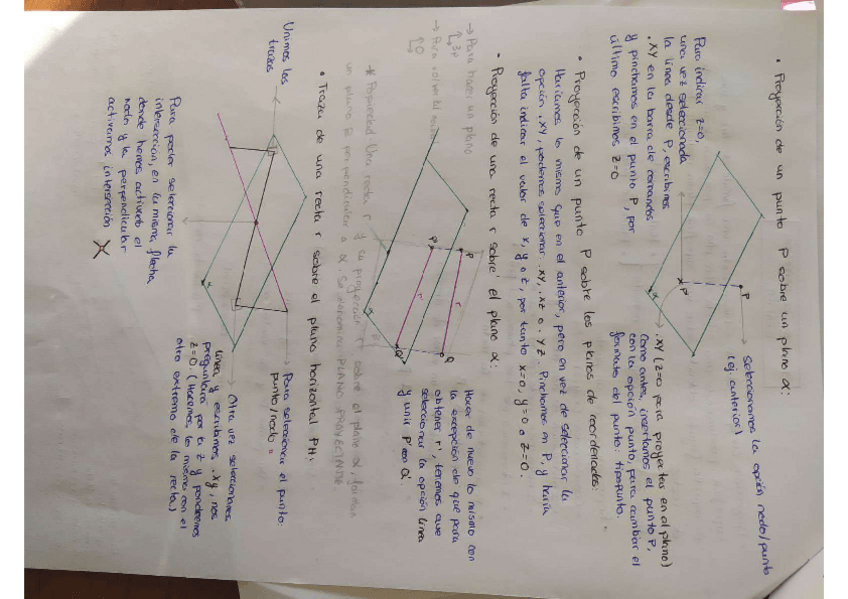 • Proyección de un punto P sobre un plano α:
Seleccionamos la opción nodo/punto
(ej. anteriores)
P
P'
α
Para indicar z=0,
una vez seleccionada
la línea desde P, escribimos
.XY en la barra de comandos
y pinchamos en el punto P, por
último escribimos z=0
.XY (z=0 para proyectos en el plano)
Como antes, insertamos el punto P,
con la opción punto, para cambiar el
formato del punto: tipopunto.
• Proyección de un punto P sobre los planos de coordenadas:
Haríamos lo mismo que en el anterior, pero en vez de seleccionar la
opción .XY, podemos seleccionar .XY, .XZ o .YZ. Pinchamos en P, y haría
falta indicar el valor de x, y o z, por tanto x=0, y=0 o z=0.
• Proyección de una recta r sobre el plano α:
→ Para hacer un plano
↳ 3P
P
P'
r
r'
Q
Q'
α
Hacer de nuevo lo mismo con
la excepción de que para
obtener r', tenemos que
seleccionar la opción línea
y unir P' con Q'
* Propiedad: Una recta r y su proyección r' sobre el plano α, forman
un plano β perpendicular a α. Se denomina PLANO PROYECTANTE
• Traza de una recta r sobre el plano horizontal PH:
Unimos las
trazas
Para seleccionar el punto:
punto/nodo
α
Otra vez seleccionamos
línea y escribimos .xy, nos
preguntará por la z y pondremos
z=0. (Hacemos lo mismo con el
otro extremo de la recta)
Para poder seleccionar la
intersección, en la misma flecha
donde hemos activado el
nodo y la perpendicular
activamos intersección